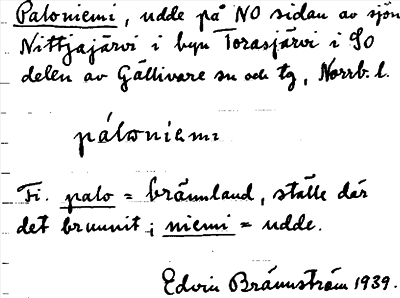 Paloniemi, udde på NO sidan av sjön
Nittjajärvi i byn Torasjärvi i SO
delen av Gällivare sn och tg, Norrb. l.
pálωniεmι
Fi. palo = bränn land, ställe där
det brunnit; niemi = udde.
Edvin Brännström 1939.